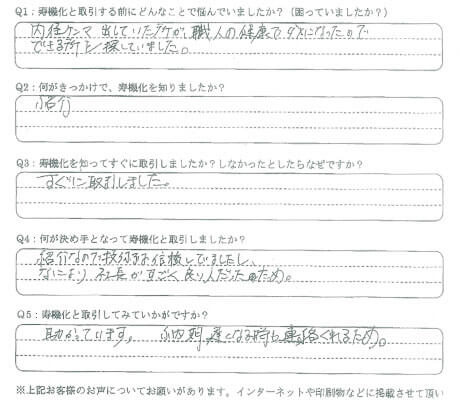 Q1：寿機化と取引する前にどんなことで悩んでいましたか？（困っていましたか？）
内径ケンマ出していた所が、職人の健康でダメになったので
できる所を探していました。
Q2：何がきっかけで、寿機化を知りましたか？
紹介
Q3：寿機化を知ってすぐに取引しましたか？しなかったとしたらなぜですか？
すぐに取引しました。
Q4：何が決め手となって寿機化と取引しましたか？
紹介なので技術も信頼していましたし、
なにより、社長がすごく良い人だったため。
Q5：寿機化と取引してみていかがですか？
助かっています。 納期、遅くなる時も連絡くれるため。
※上記お客様のお声についてお願いがあります。インターネットや印刷物などに掲載させて頂い